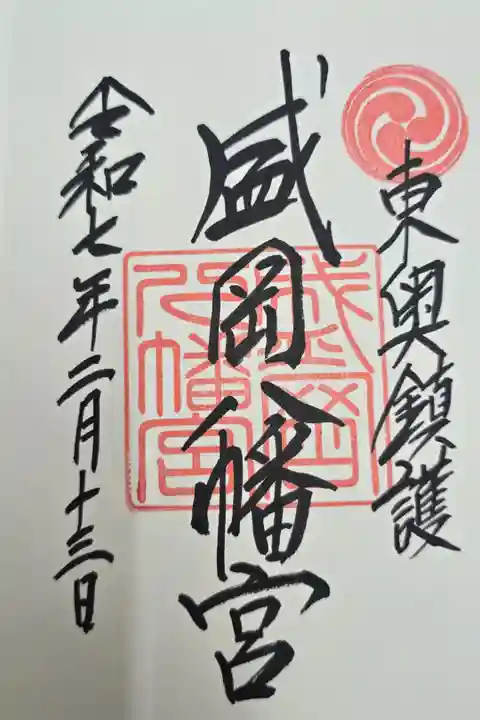 東奥鎮護
盛岡八幡宮
盛岡
八幡宮
令和七年二月十三日